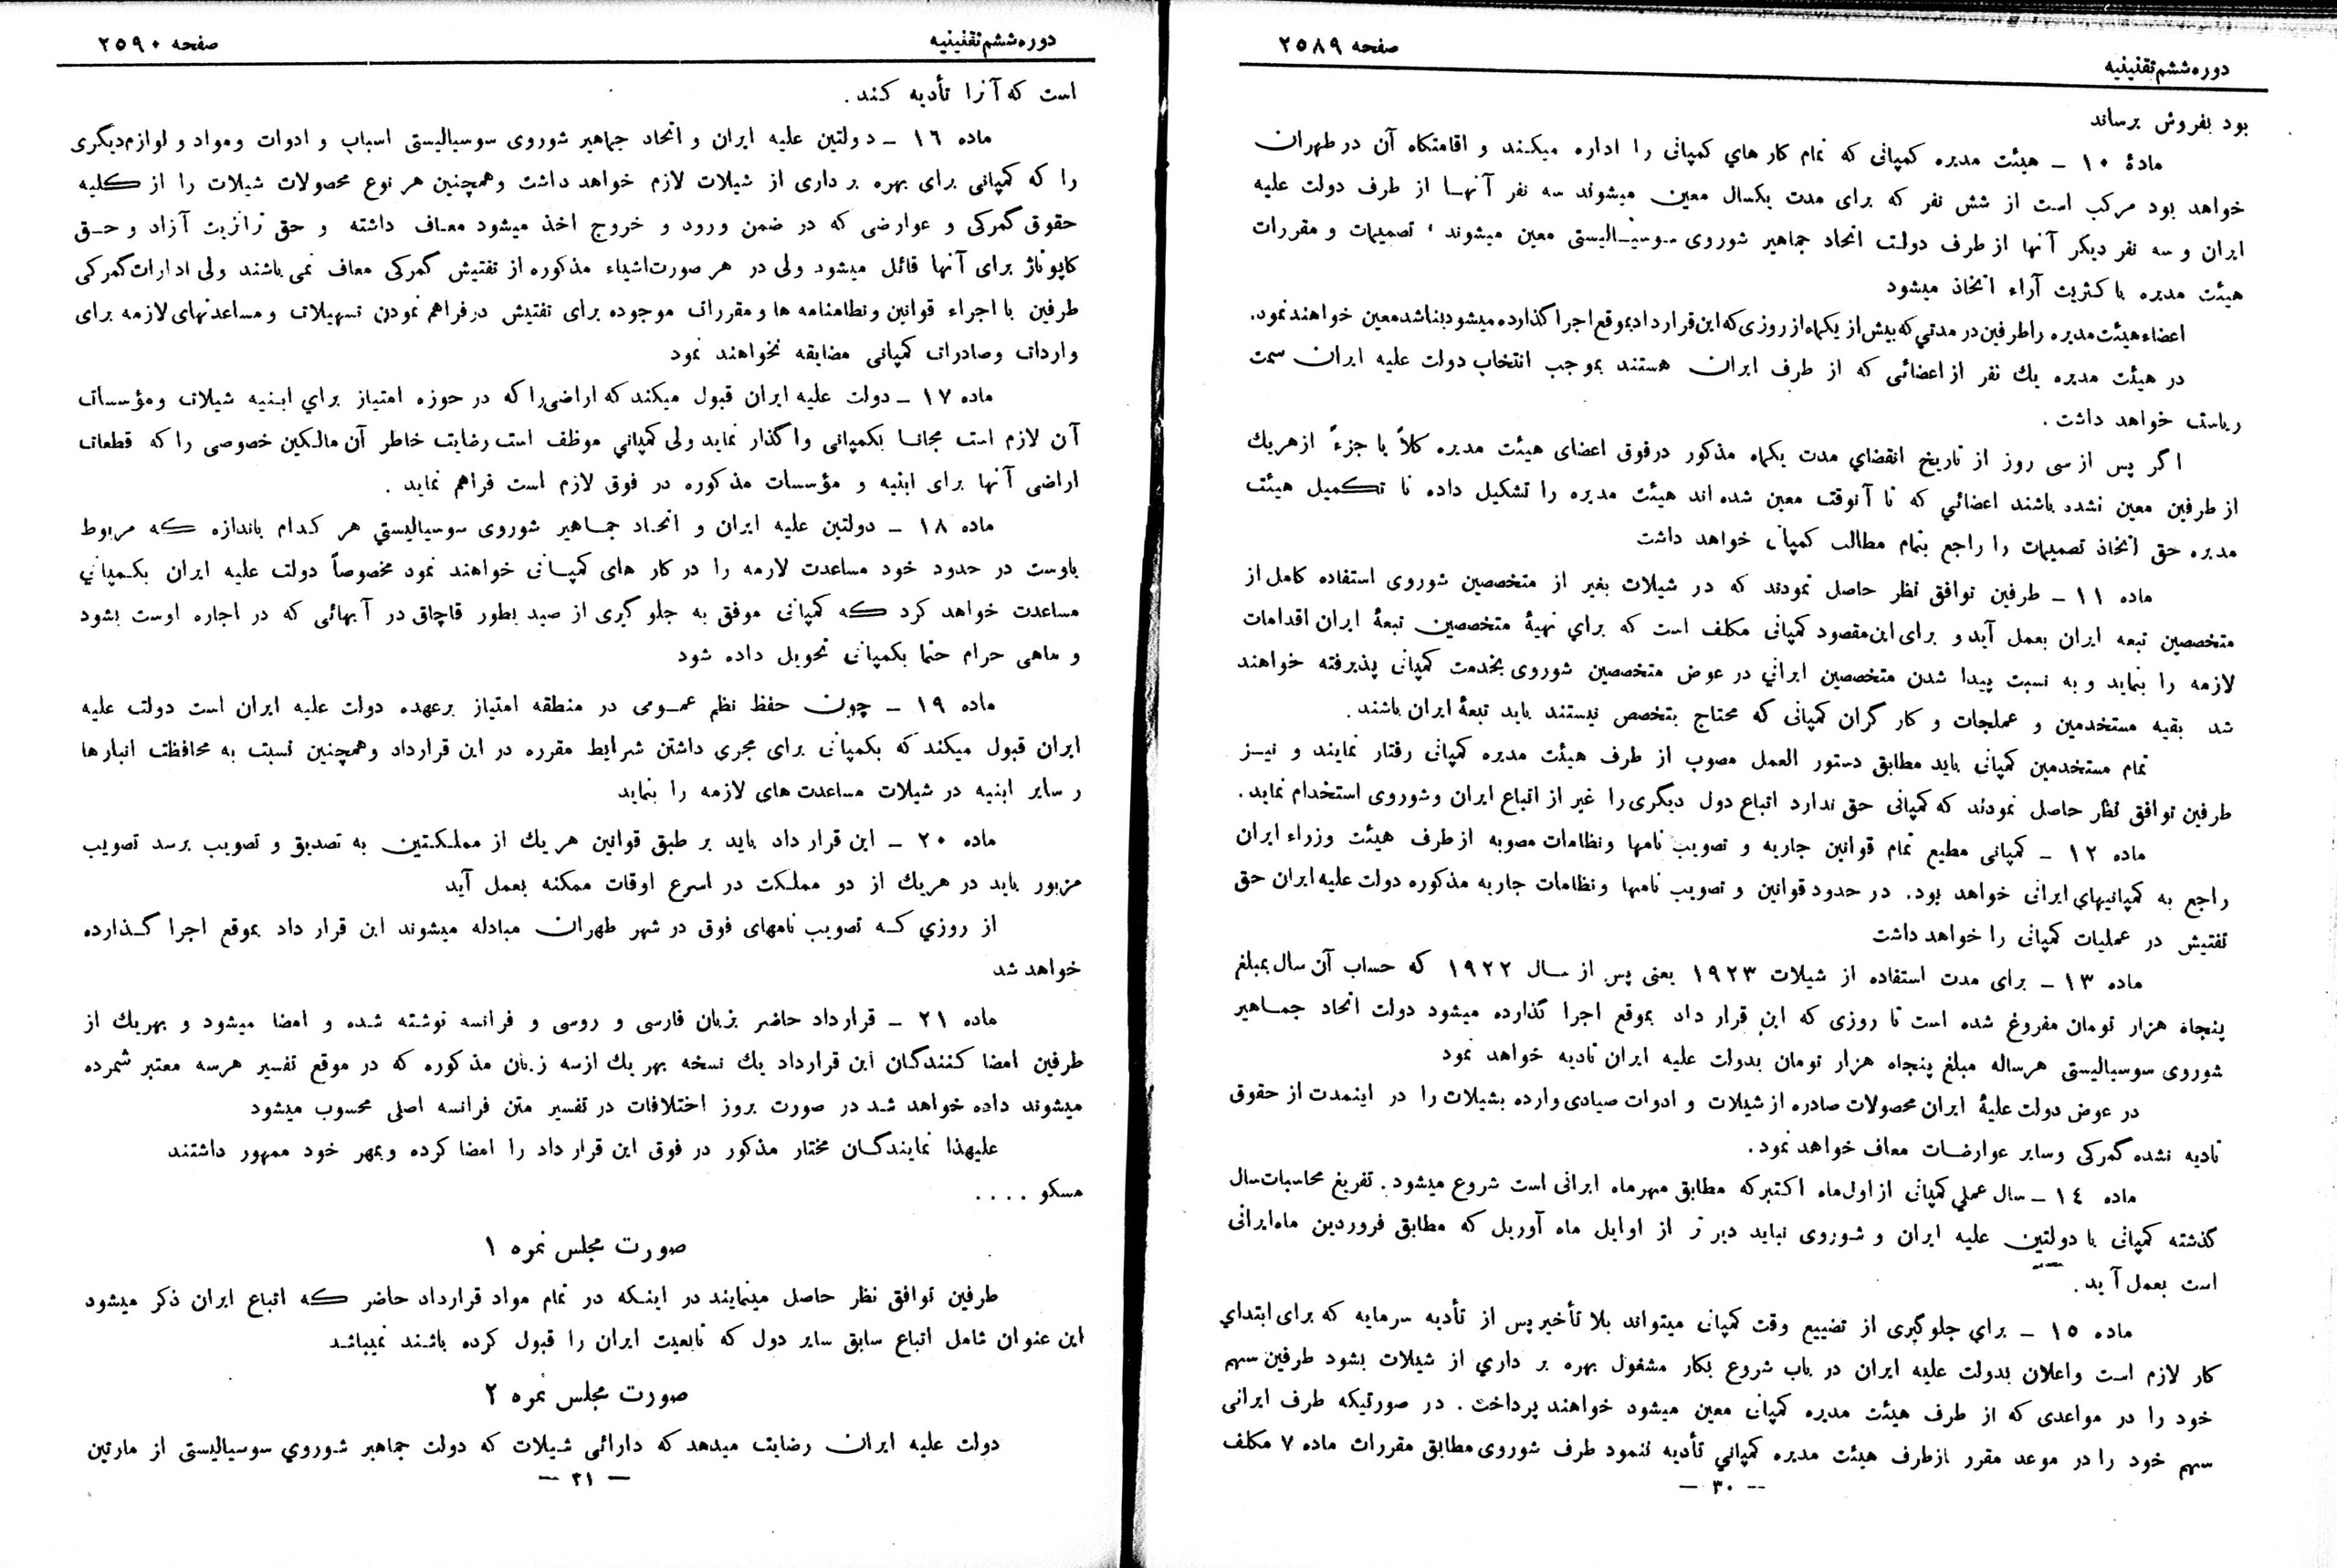 صفحه ۲۵۸۹
دوره ششم تقنینیه
بود بفروش برساند
مادهٔ ۱۰ ــ هیئت مدیره کمپانی که تمام کارهای کمپانی را اداره میکند و اقامتگاه آن در طهران
خواهد بود مرکب است از شش نفر که برای مدت یکسال معین میشوند سه نفر آنهــا از طرف دولت علیه
ایران و سه نفر دیگر آنها از طرف دولت اتحاد جماهیر شوروی سوسیــالیستی معین میشوند ، تصمیمات و مقررات
هیئت مدیره باکثریت آراء اتخاذ میشود
اعضاء هیئت مدیره را طرفین در مدتی که بیش از یکماه از روزی که این قرارداد بموقع اجرا گذارده میشود نباشد معین خواهند نمود.
در هیئت مدیره یك نفر از اعضائی که از طرف ایران هستند بموجب انتخاب دولت علیه ایران سمت
ریاست خواهد داشت .
اگر پس از سی روز از تاریخ انقضای مدت یکماه مذکور در فوق اعضای هیئت مدیره کلاً یا جزءً از هریك
از طرفین معین نشده باشند اعضائی که تا آنوقت معین شده اند هیئت مدیره را تشکیل داده تا تکمیل هیئت
مدیره حق اتخاذ تصمیمات را راجع بتمام مطالب کمپانی خواهد داشت
ماده ۱۱ ــ طرفین توافق نظر حاصل نمودند که در شیلات بغیر از متخصصین شوروی استفاده کامل از
متخصصین تبعه ایران بعمل آید و برای این مقصود کمپانی مکلف است که برای تهیهٔ متخصصین تبعهٔ ایران اقدامات
لازمه را بنماید و به نسبت پیدا شدن متخصصین ایرانی در عوض متخصصین شوروی بخدمت کمپانی پذیرفته خواهند
شد بقیه مستخدمین و عملجات و کار گران کمپانی که محتاج بتخصص نیستند باید تبعهٔ ایران باشند .
تمام مستخدمین کمپانی باید مطابق دستور العمل مصوب از طرف هیئت مدیره کمپانی رفتار نمایند و نیــز
طرفین توافق نظر حاصل نمودند که کمپانی حق ندارد اتباع دول دیگری را غیر از اتباع ایران و شوروی استخدام نماید .
ماده ۱۲ ــ کمپانی مطیع تمام قوانین جاریه و تصویب نامها و نظامات مصوبه از طرف هیئت وزراء ایران
راجع به کمپانیهای ایرانی خواهد بود . در حدود قوانین و تصویب نامها و نظامات جاریه مذکوره دولت علیه ایران حق
تفتیش در عملیات کمپانی را خواهد داشت
ماده ۱۳ ــ برای مدت استفاده از شیلات ۱۹۲۳ یعنی پس از سال ۱۹۲۲ که حساب آن سال بمبلغ
پنجاه هزار تومان مفروغ شده است تا روزی که این قرار داد بموقع اجرا گذارده میشود دولت اتحاد جمــاهیر
شوروی سوسیالیستی هرساله مبلغ پنجاه هزار تومان بدولت علیه ایران تادیه خواهد نمود
در عوض دولت علیهٔ ایران محصولات صادره از شیلات و ادوات صیادی وارده بشیلات را در اینمدت از حقوق
تادیه نشده گمرکی و سایر عوارضات معاف خواهد نمود .
ماده ۱٤ ــ سال عملی کمپانی از اول ماه اکتبر که مطابق مهرماه ایرانی است شروع میشود . تفریغ محاسبات سال
گذشته کمپانی با دولتین علیه ایران و شوروی نباید دیر تر از اوایل ماه آوریل که مطابق فروردین ماه ایرانی
است بعمل آید .
ماده ۱۵ ــ برای جلوگیری از تضییع وقت کمپانی میتواند بلا تأخیر پس از تأدیه سرمایه که برای ابتدای
کار لازم است و اعلان بدولت علیه ایران در باب شروع بکار مشغول بهره بر داری از شیلات بشود طرفین سهم
خود را در مواعدی که از طرف هیئت مدیره کمپانی معین میشود خواهند پرداخت . در صورتیکه طرف ایرانی
سهم خود را در موعد مقرر از طرف هیئت مدیره کمپانی تأدیه ننمود طرف شوروی مطابق مقررات ماده ۷ مکلف
ــ ۳۰ ــ
صفحه ۲۵۹۰
دوره ششم تقنینیه
است که آنرا تأدیه کند .
ماده ۱٦ ــ دولتین علیه ایران و اتحاد جماهیر شوروی سوسیالیستی اسباب و ادوات و مواد و لوازم دیگری
را که کمپانی برای بهره برداری از شیلات لازم خواهد داشت و همچنین هر نوع محصولات شیلات را از کلیه
حقوق گمرکی و عوارضی که در ضمن ورود و خروج اخذ میشود معـاف داشته و حق ترانزیت آزاد و حـق
کاپوتاژ برای آنها قائل میشود ولی در هر صورت اشیاء مذکوره از تفتیش گمرکی معاف نمی باشند ولی ادارات گمرکی
طرفین با اجراء قوانین و نظامنامه ها و مقررات موجوده برای تفتیش در فراهم نمودن تسهیلات و مساعدتهای لازمه برای
واردات و صادرات کمپانی مضایقه نخواهند نمود
ماده ۱۷ ــ دولت علیه ایران قبول میکند که اراضی را که در حوزه امتیاز برای ابنیه شیلات و مؤسسات
آن لازم است مجانـا بکمپانی واگذار نماید ولی کمپانی موظف است رضایت خاطر آن مالکین خصوصی را که قطعات
اراضی آنها برای ابنیه و مؤسسات مذکوره در فوق لازم است فراهم نماید .
ماده ۱۸ ــ دولتین علیه ایران و اتحـاد جمـاهیر شوروی سوسیالیستی هر کدام باندازه کـه مربوط
باوست در حدود خود مساعدت لازمه را در کار های کمپـانی خواهند نمود مخصوصاً دولت علیه ایران بکمپانی
مساعدت خواهد کرد که کمپانی موفق به جلوگیری از صید بطور قاچاق در آبهائی که در اجاره اوست بشود
و ماهی حرام حتما بکمپانی تحویل داده شود
ماده ۱۹ ــ چون حفظ نظم عمـومی در منطقه امتیاز برعهده دولت علیه ایران است دولت علیه
ایران قبول میکند که بکمپانی برای مجری داشتن شرایط مقرره در این قرارداد و همچنین نسبت به محافظت انبارها
و سایر ابنیه در شیلات مساعدت های لازمه را بنماید
ماده ۲۰ ــ این قرار داد باید بر طبق قوانین هریك از مملکتین به تصدیق و تصویب برسد تصویب
مزبور باید در هریك از دو مملکت در اسرع اوقات ممکنه بعمل آید
از روزی کـه تصویب نامهای فوق در شهر طهران مبادله میشوند این قرار داد بموقع اجرا گـذارده
خواهد شد
ماده ۲۱ ــ قرارداد حاضر بزبان فارسی و روسی و فرانسه نوشته شده و امضا میشود و بهریك از
طرفین امضا کنندگان این قرارداد یك نسخه بهر یك از سه زبان مذکوره که در موقع تفسیر هرسه معتبر شمرده
میشوند داده خواهد شد در صورت بروز اختلافات در تفسیر متن فرانسه اصلی محسوب میشود
علیهذا نمایندگان مختار مذکور در فوق این قرار داد را امضا کرده و بمهر خود ممهور داشتند
مسکو . . . .
صورت مجلس نمره ۱
طرفین توافق نظر حاصل مینمایند در اینکه در تمام مواد قرارداد حاضر که اتباع ایران ذکر میشود
این عنوان شامل اتباع سابق سایر دول که تابعیت ایران را قبول کرده باشند نمیباشد
صورت مجلس نمره ۲
دولت علیه ایران رضایت میدهد که دارائی شیلات که دولت جماهیر شوروی سوسیالیستی از مارتین
ــ ۳۱ ــ